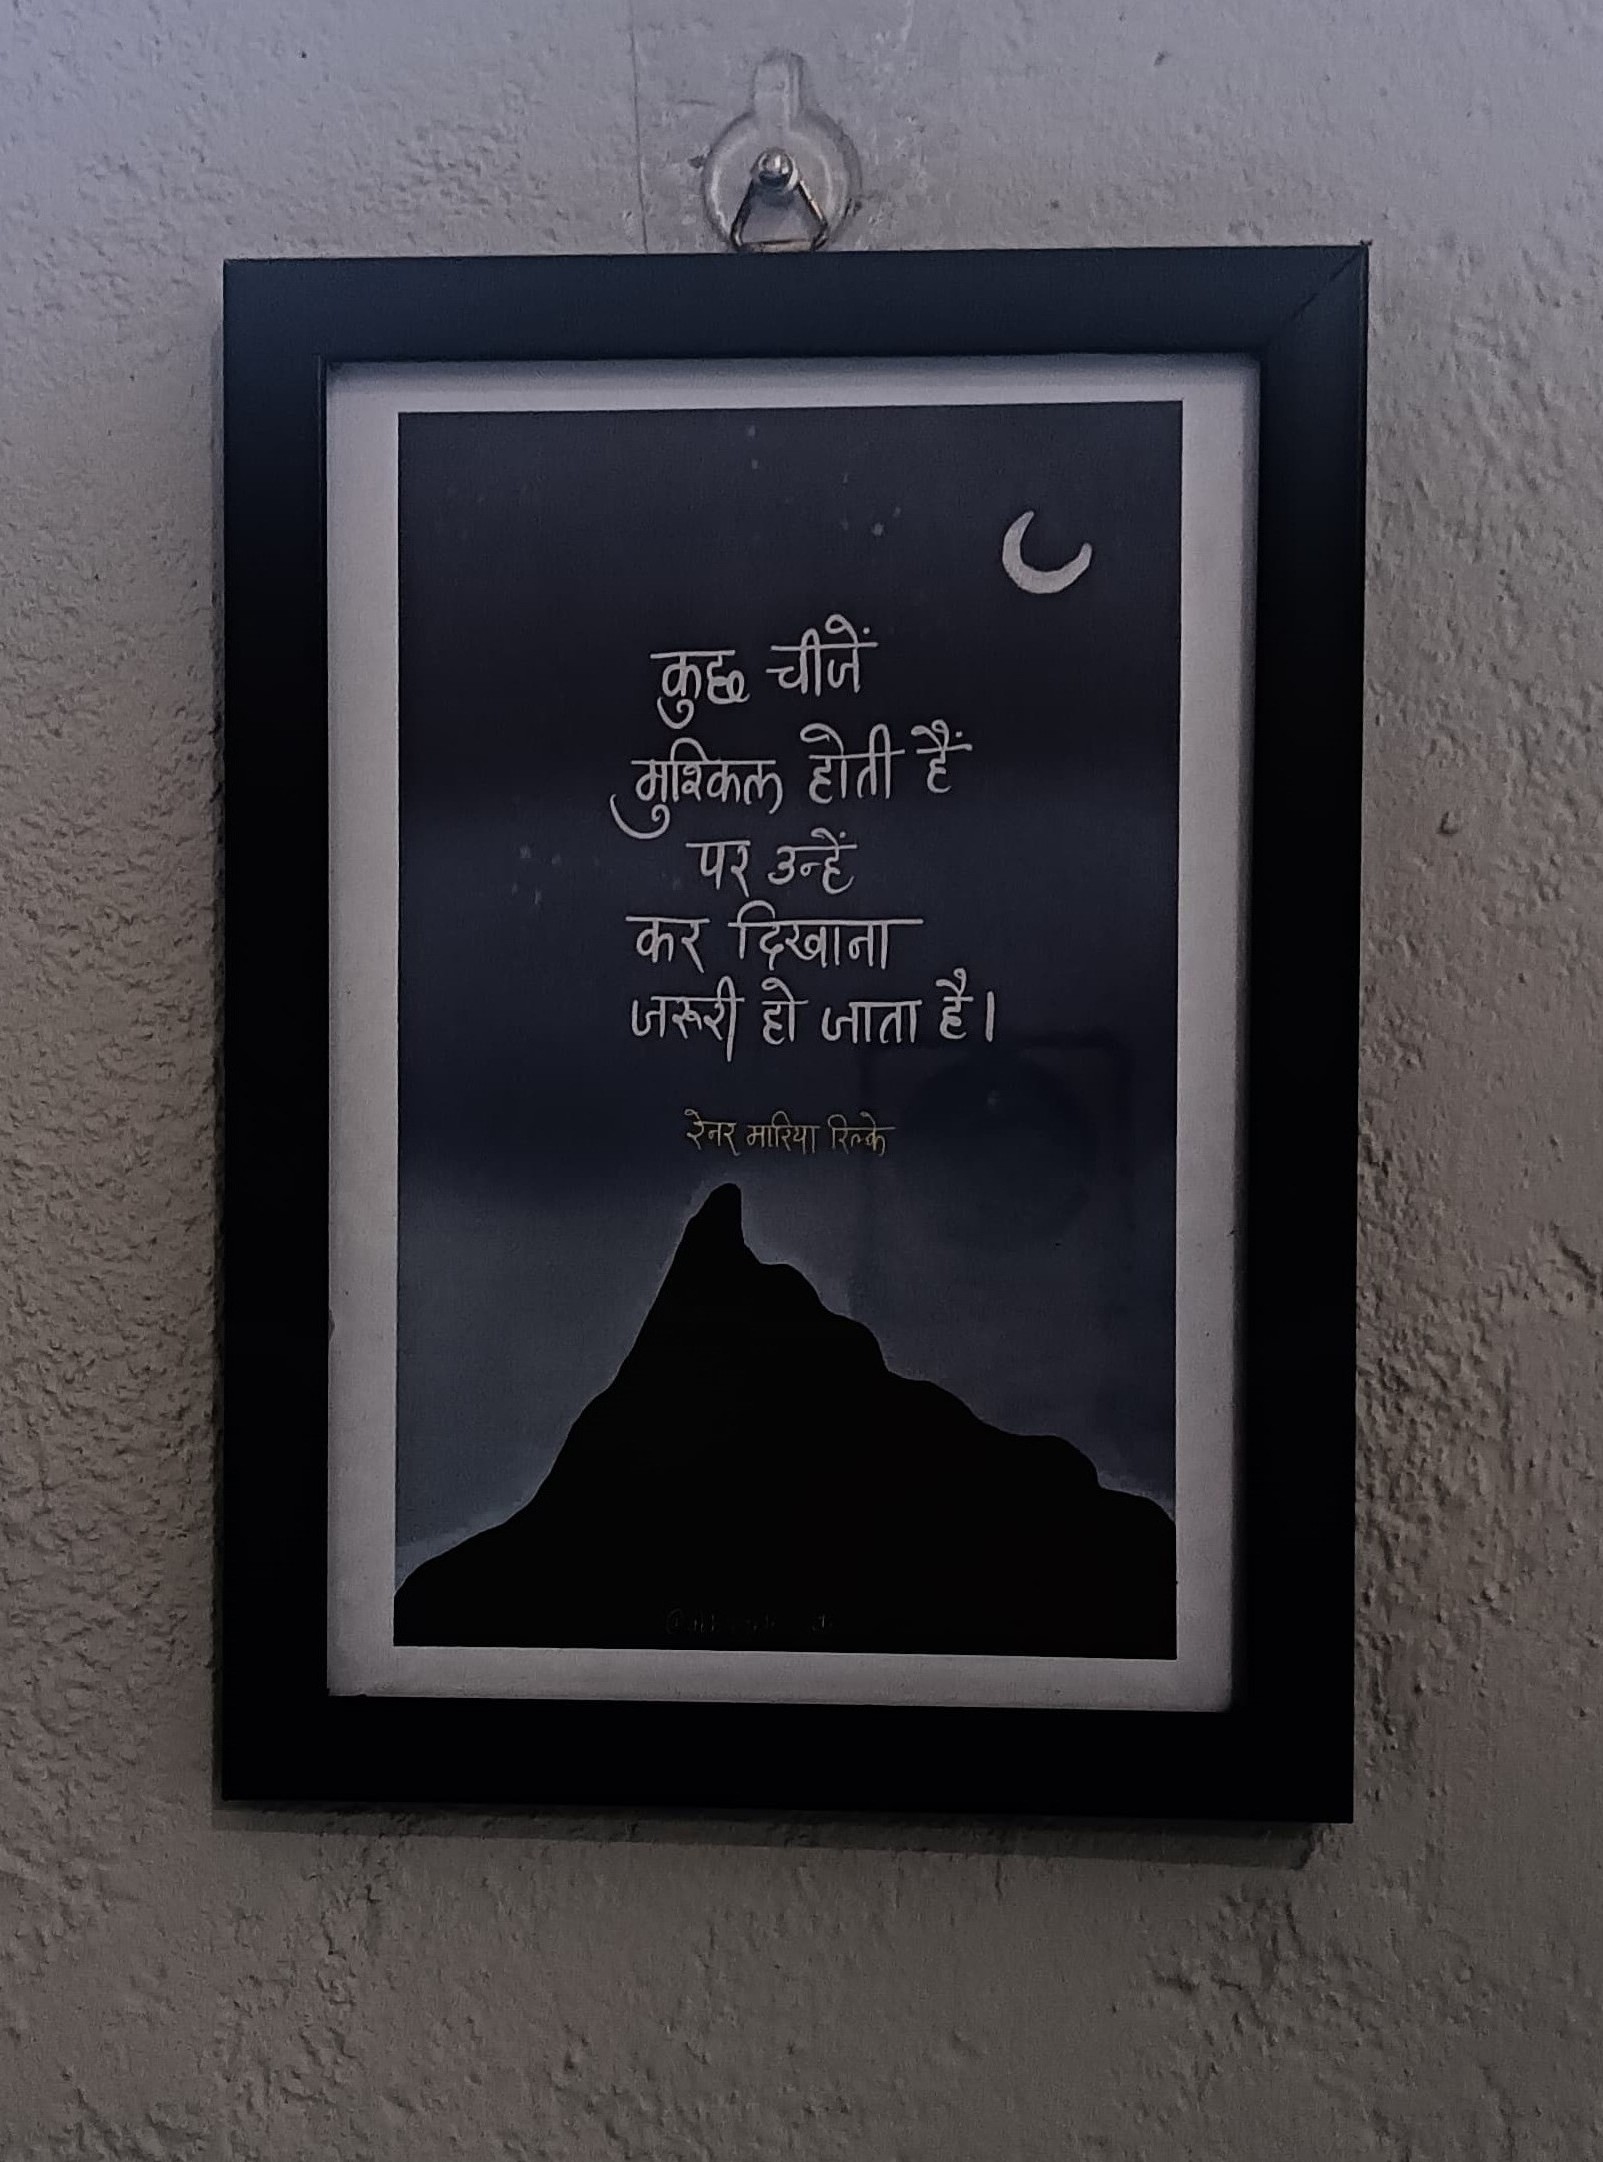 कुछ चीजें
मुश्किल होती हैं
पर उन्हें
कर दिखाना
जरूरी हो जाता है।
रेनर मारिया रिल्के